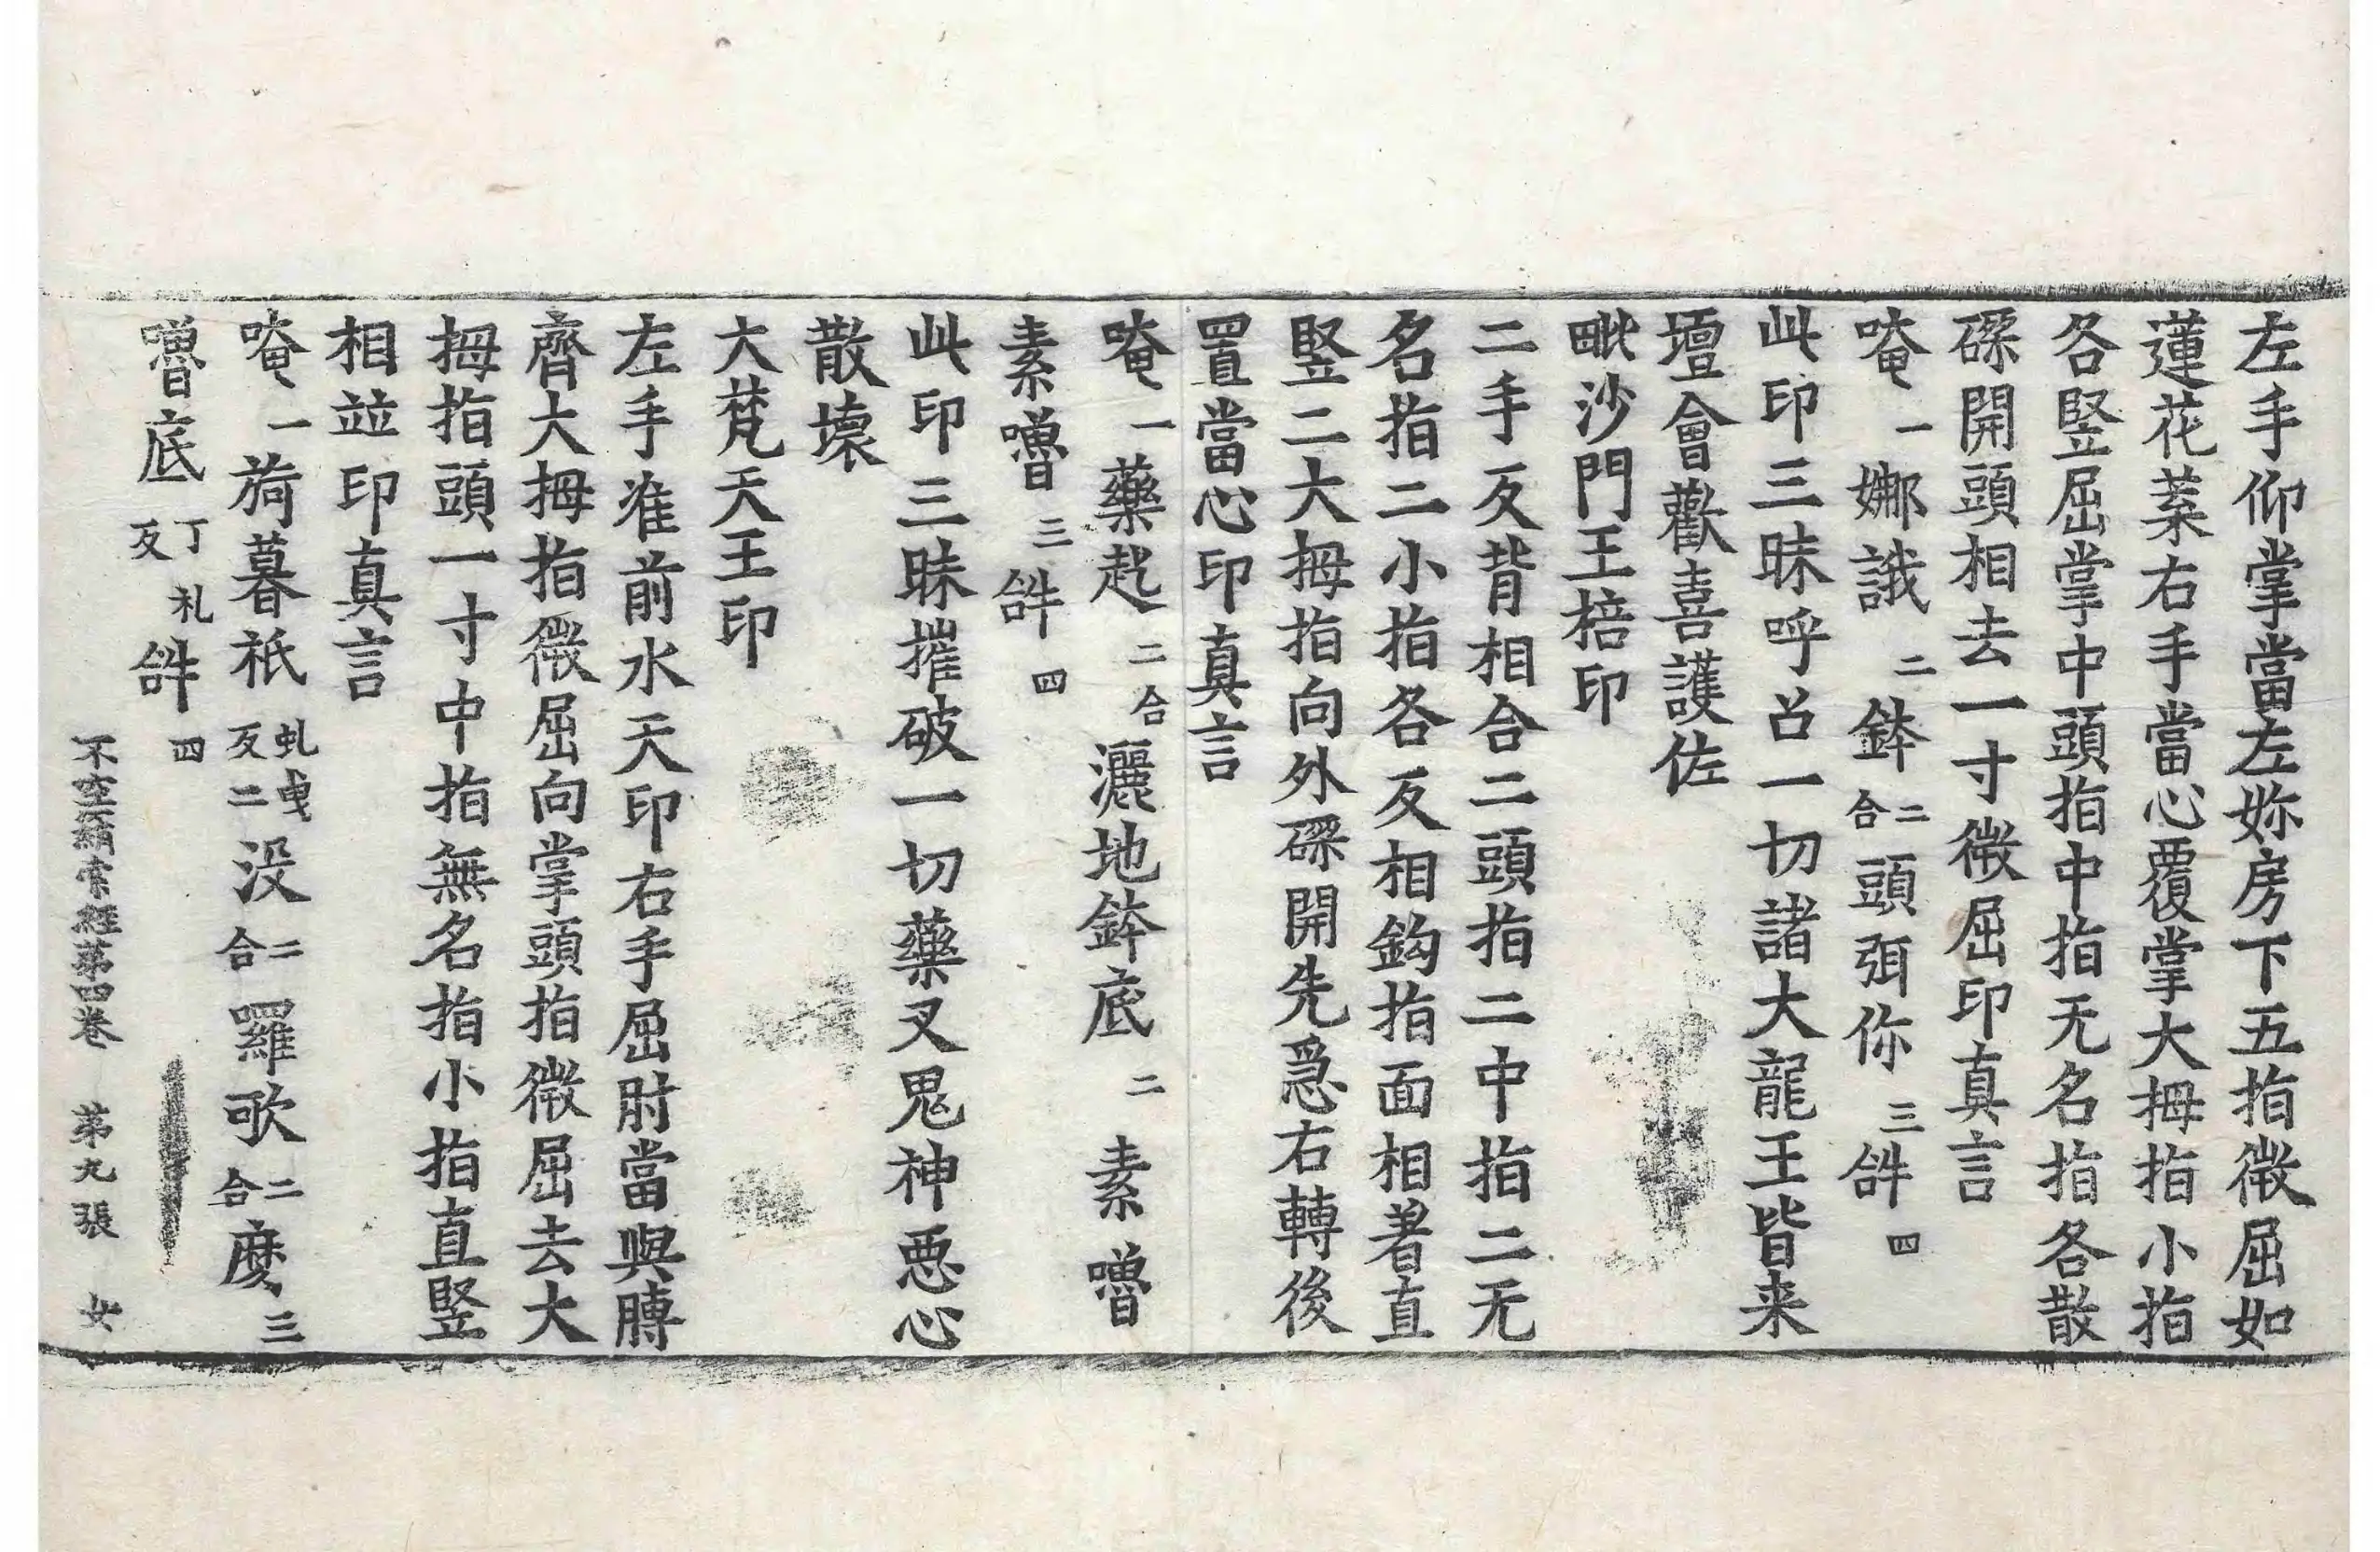 左手仰掌當左妳房下五指微屈如
蓮花葉右手當心覆掌大拇指小指
各竪屈掌中頭指中指无名指各散
磔開頭相去一寸微屈印真言
唵一娜誐二鉢二合頭弭你三𤙖四
此印三昧呼召一切諸大龍王皆来
壇會歡喜護佐
毗沙門王棓印
二手反背相合二頭指二中指二无
名指二小指各反相鈎指面相著直
竪二大拇指向外磔開先爲右轉後
置當心印真言
唵一藥起二合灑地鉢底二素嚕
素嚕三𤙖四
此印三昧摧破一切藥叉鬼神惡心
散壞
大梵天王印
左手准前水天印右手屈肘當與膞
齊大拇指微屈向掌頭指微屈去大
拇指頭一寸中指無名指小指直竪
相並印真言
唵一旖暮祇虬曳反二没二合囉歌二合麼三
嚕底丁札反𤙖四
不空羂索經第四卷 第九張 女